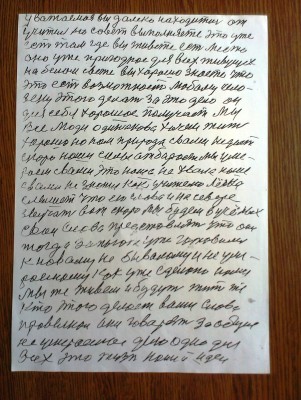 Уважаемая вы далеко находитись от
учителя но совет выполняете Это уже
есть там где вы живёте есть место
оно уже природное для всех живущих
на белом свете вы хорошо знаете что
Это есть возможность любому чело
веку Этого делать За Это дело он
для себя хорошое получает Мы
Все Люди одинаково хочим жить
хорошо но нам природа своим не даёт
скоро наши силы отбарает мы уми
раем своим Это наше не
своим не знаем Как учителю
слышать что его слова на севере
звучать вот скоро мы будем
свои слова представлять что он
тогда за
к новому не бывалому и не уми
раемому Как уже сделано нами
Мы те живём и будут жить те
кто Этого делает ваши слова
правельны они говорят За общее
не умераемое дело одно для
Всех Это жить нашей идеи